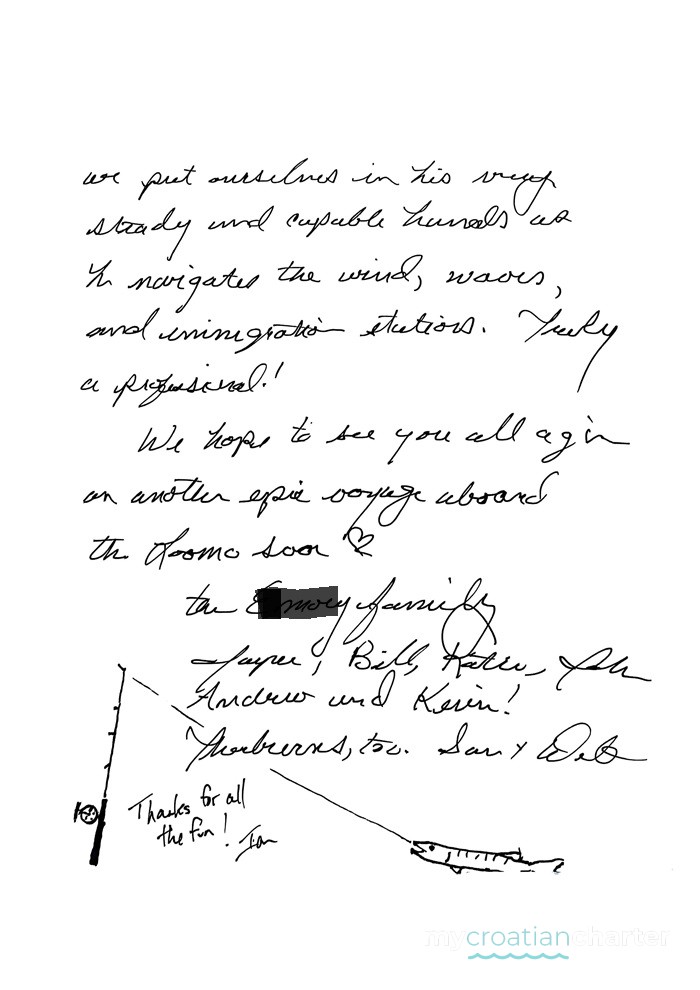 we put ourselves in his very
steady and capable hands as
he navigates the wind, waves,
and immigration stations. Truly
a professional!
We hope to see you all agin
on another epic voyage aboard
the soon ♡
the family
Bill, Katie,
Andrew and Kevin!
too. Dan +
Thanks for all
the fun! Ian
mycroatiancharter